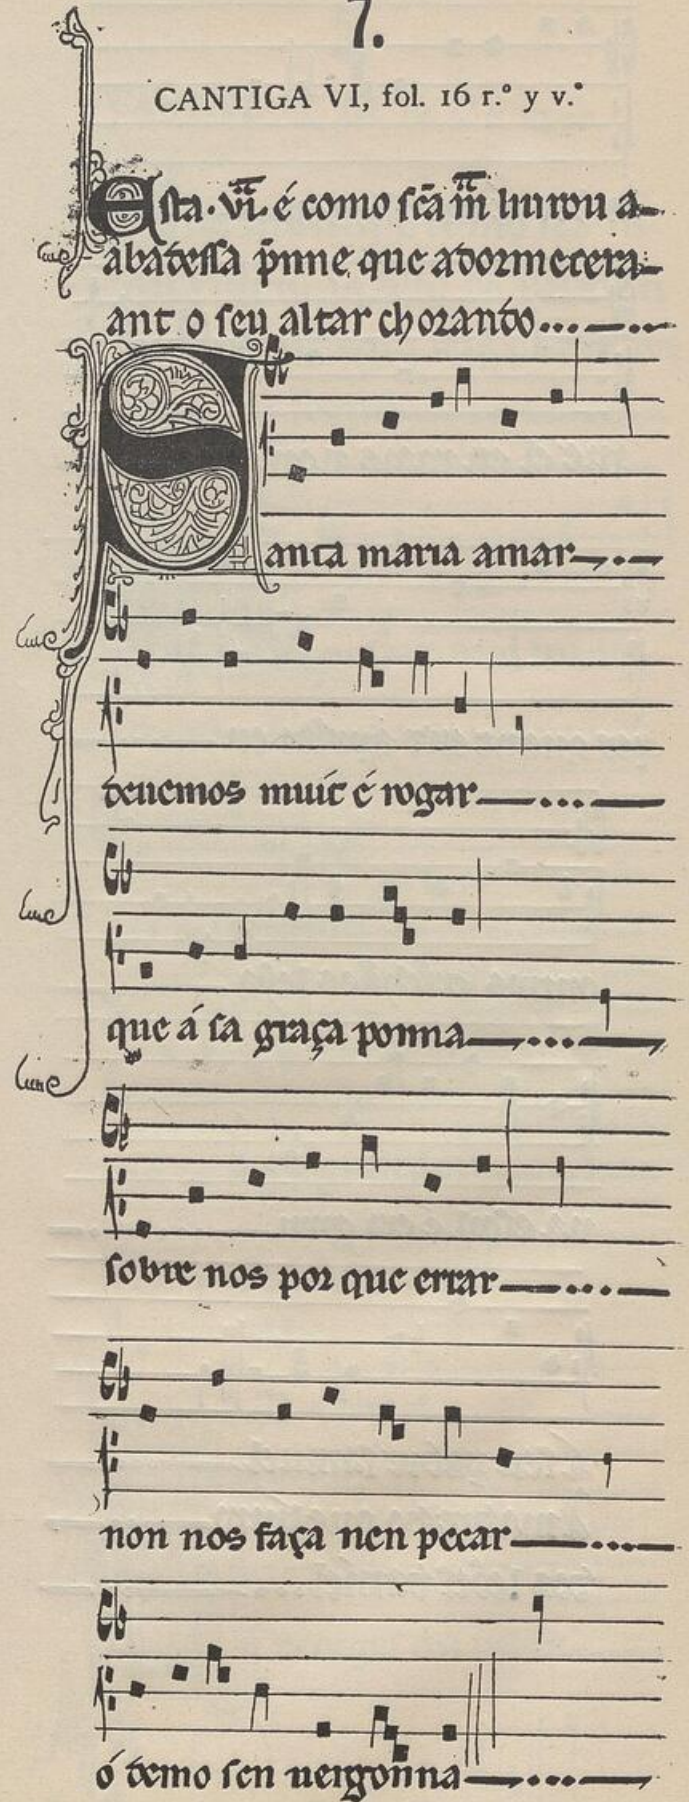 7.
CANTIGA VI, fol. 16 r.º y v.º
Esta · vi͞i · é como sc̄a m͞ liurou a
abadessa p̄nne que adormecera
ant o seu altar chorando
Santa maria amar
deuemos muit é rogar
que á sa graça ponna
sobre nos por que errar
non nos faça nen pecar
ó demo sen uergonna